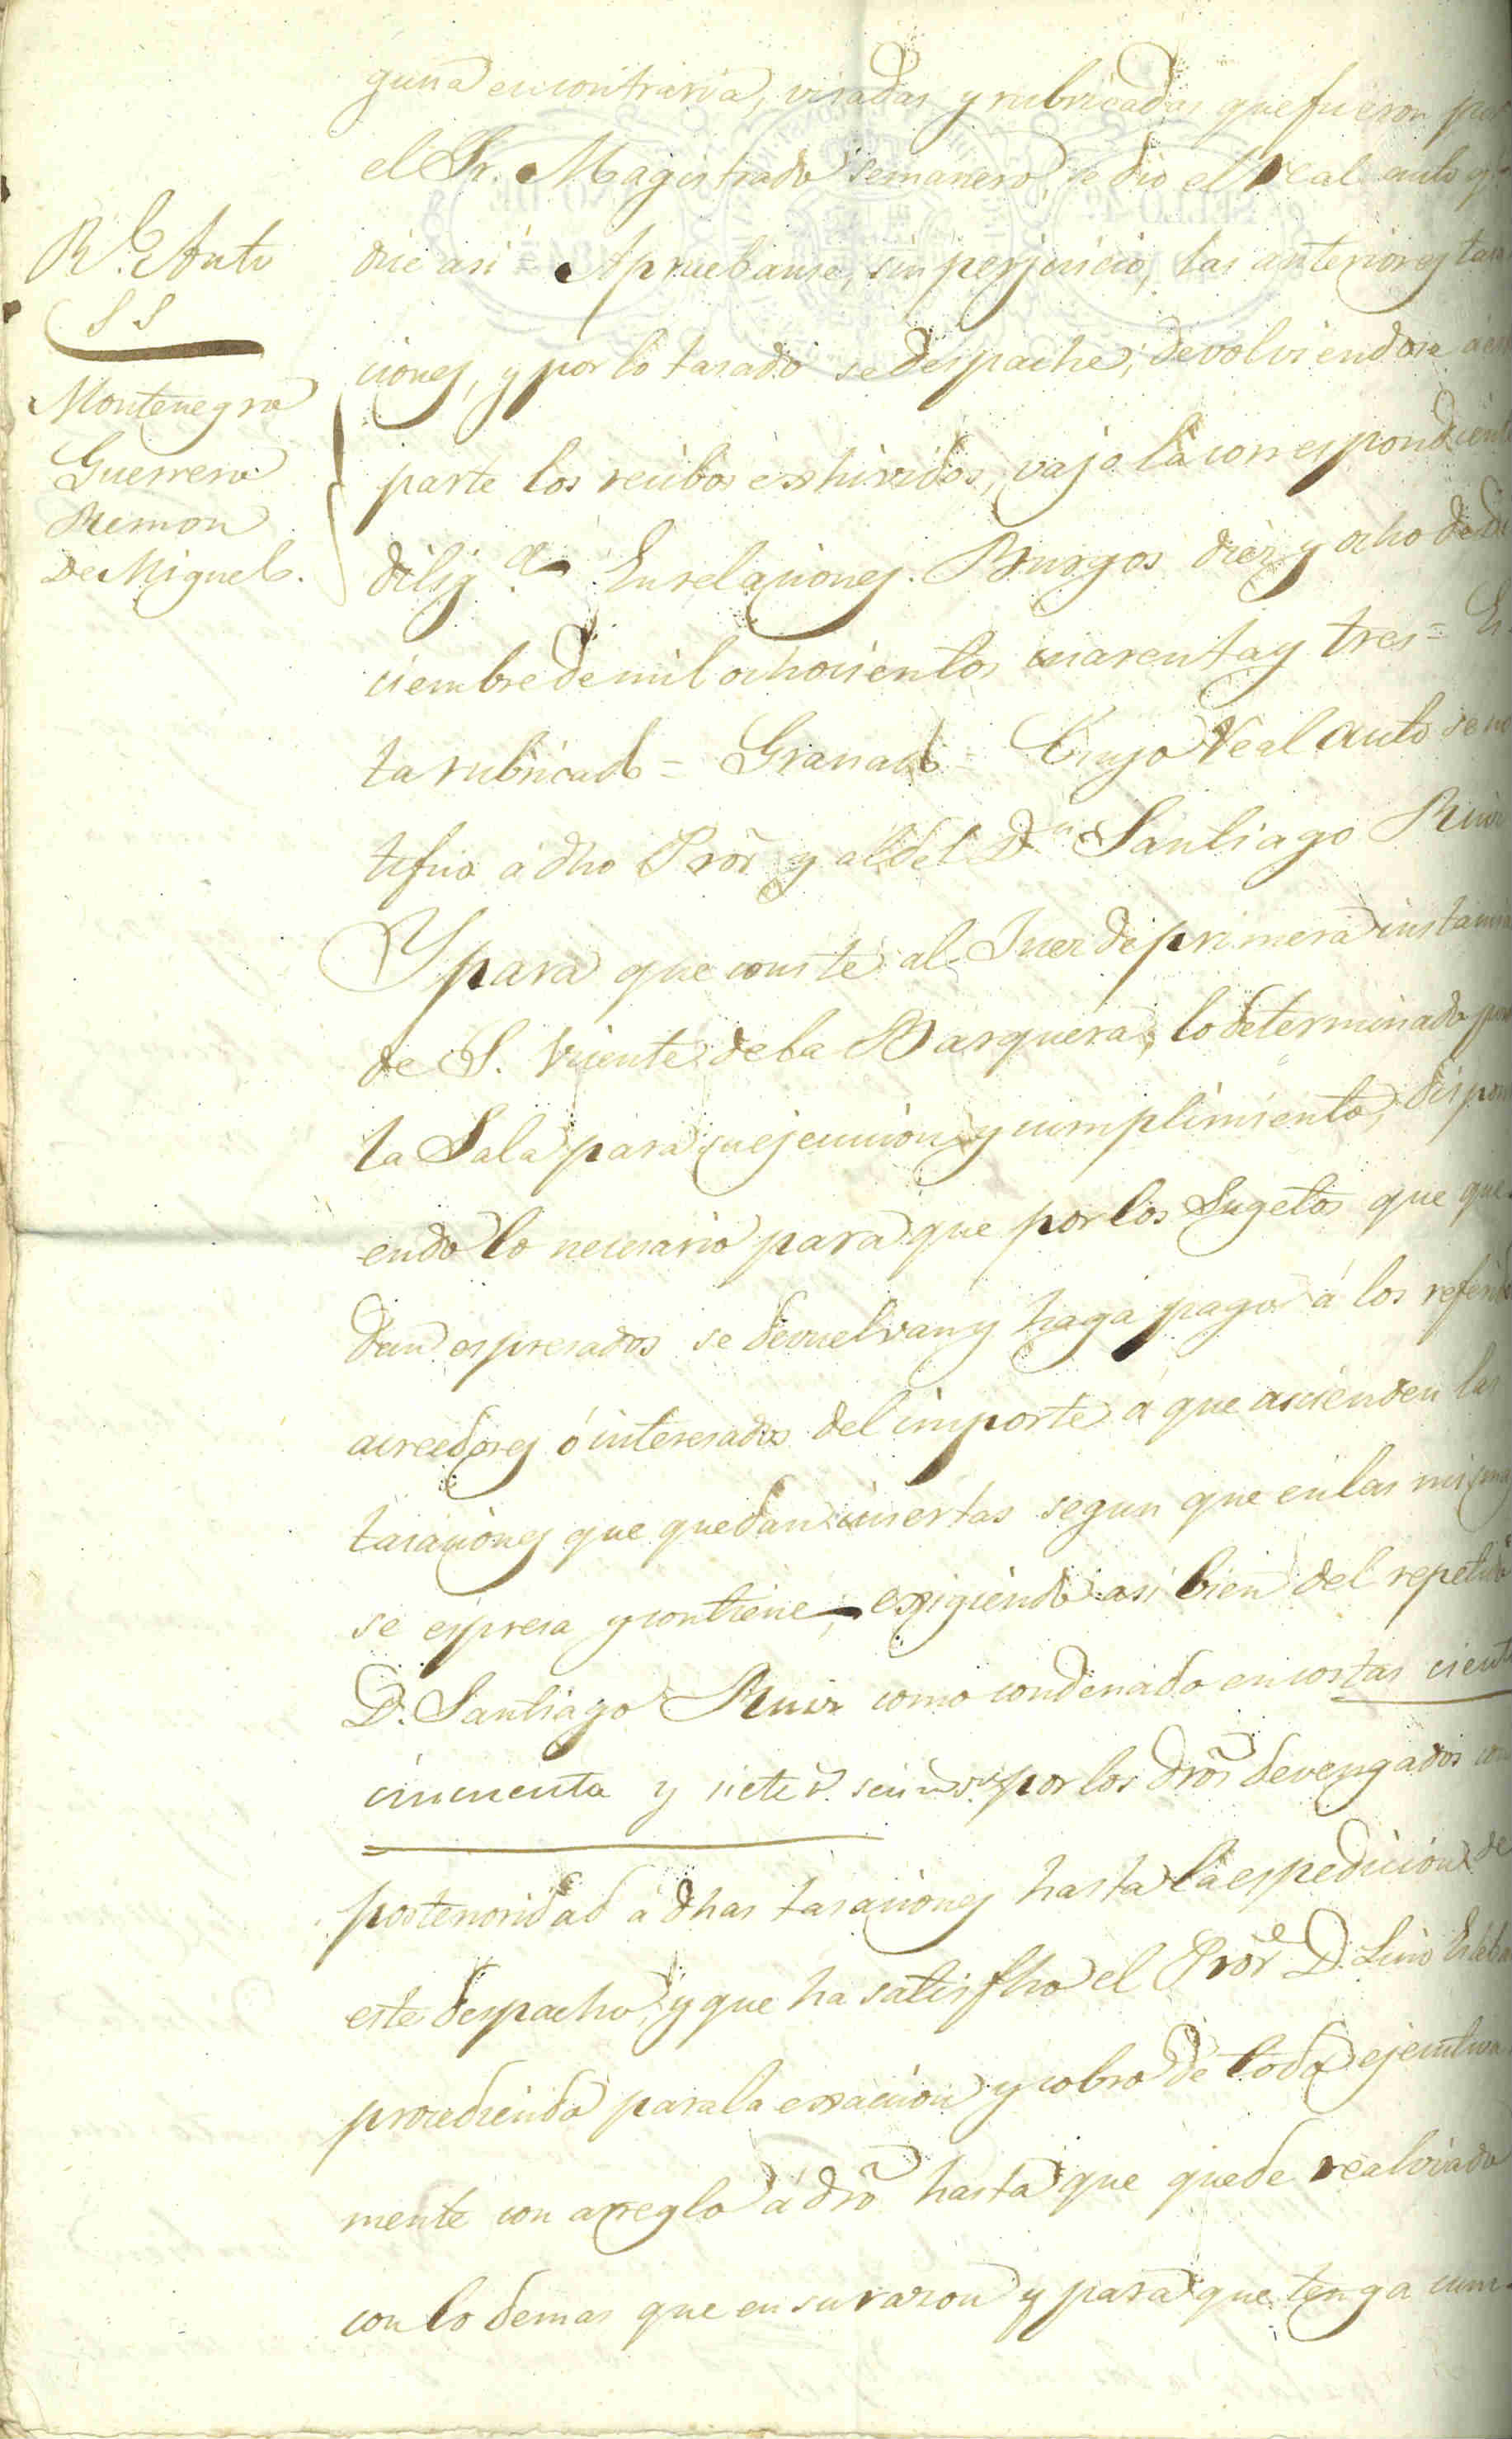 Rl. Auto
SS
Montenegro
Guerrero
Remon
De Miguel.
guna en contraria, visadas y rubricadas que fueron por
el Sr. Magistrado semanero, se dio el real auto q.e
dice asi = Apruebanse, sin perjuicio, las anteriores tasa
ciones, y por lo tasado se despache, devolviendose á esta
parte los recibos exhividos, vajo la correspondiente
dilig.a En relaciones. Burgos diez y ocho de Di
ciembre de mil ochocientos cuarenta y tres = Es
ta rubricado = Granado = Cuyo real auto se no
tificó á dho Pror y al del Dn Santiago Ruiz
Y para que conste al Juez de primera instancia
de S. Vicente de la Barquera, lo determinado por
la Sala para su ejecucion y cumplimiento, disponi
endo lo necesario para que por los Sugetos que que
dan espresados se devuelvan y haga pago á los referidos
acreedores ó interesados del importe á que ascienden las
tasaciones que quedan insertas segun que en las mismas
se espresa y contiene, exsigiendo asi bien del repetido
D. Santiago Ruiz como condenado en costas ciento
cincuenta y siete r.s seis mrs por los dros devengados con
posterioridad á dhas tasaciones hasta la espedicion de
este despacho, y que ha satisfho el Pror D. Lino Esteban
procediendo para la exsaccion y cobro de todo ejecutiva
mente con arreglo á dro hasta que quede realvado
con lo demas que en su razon y para que tenga cum-